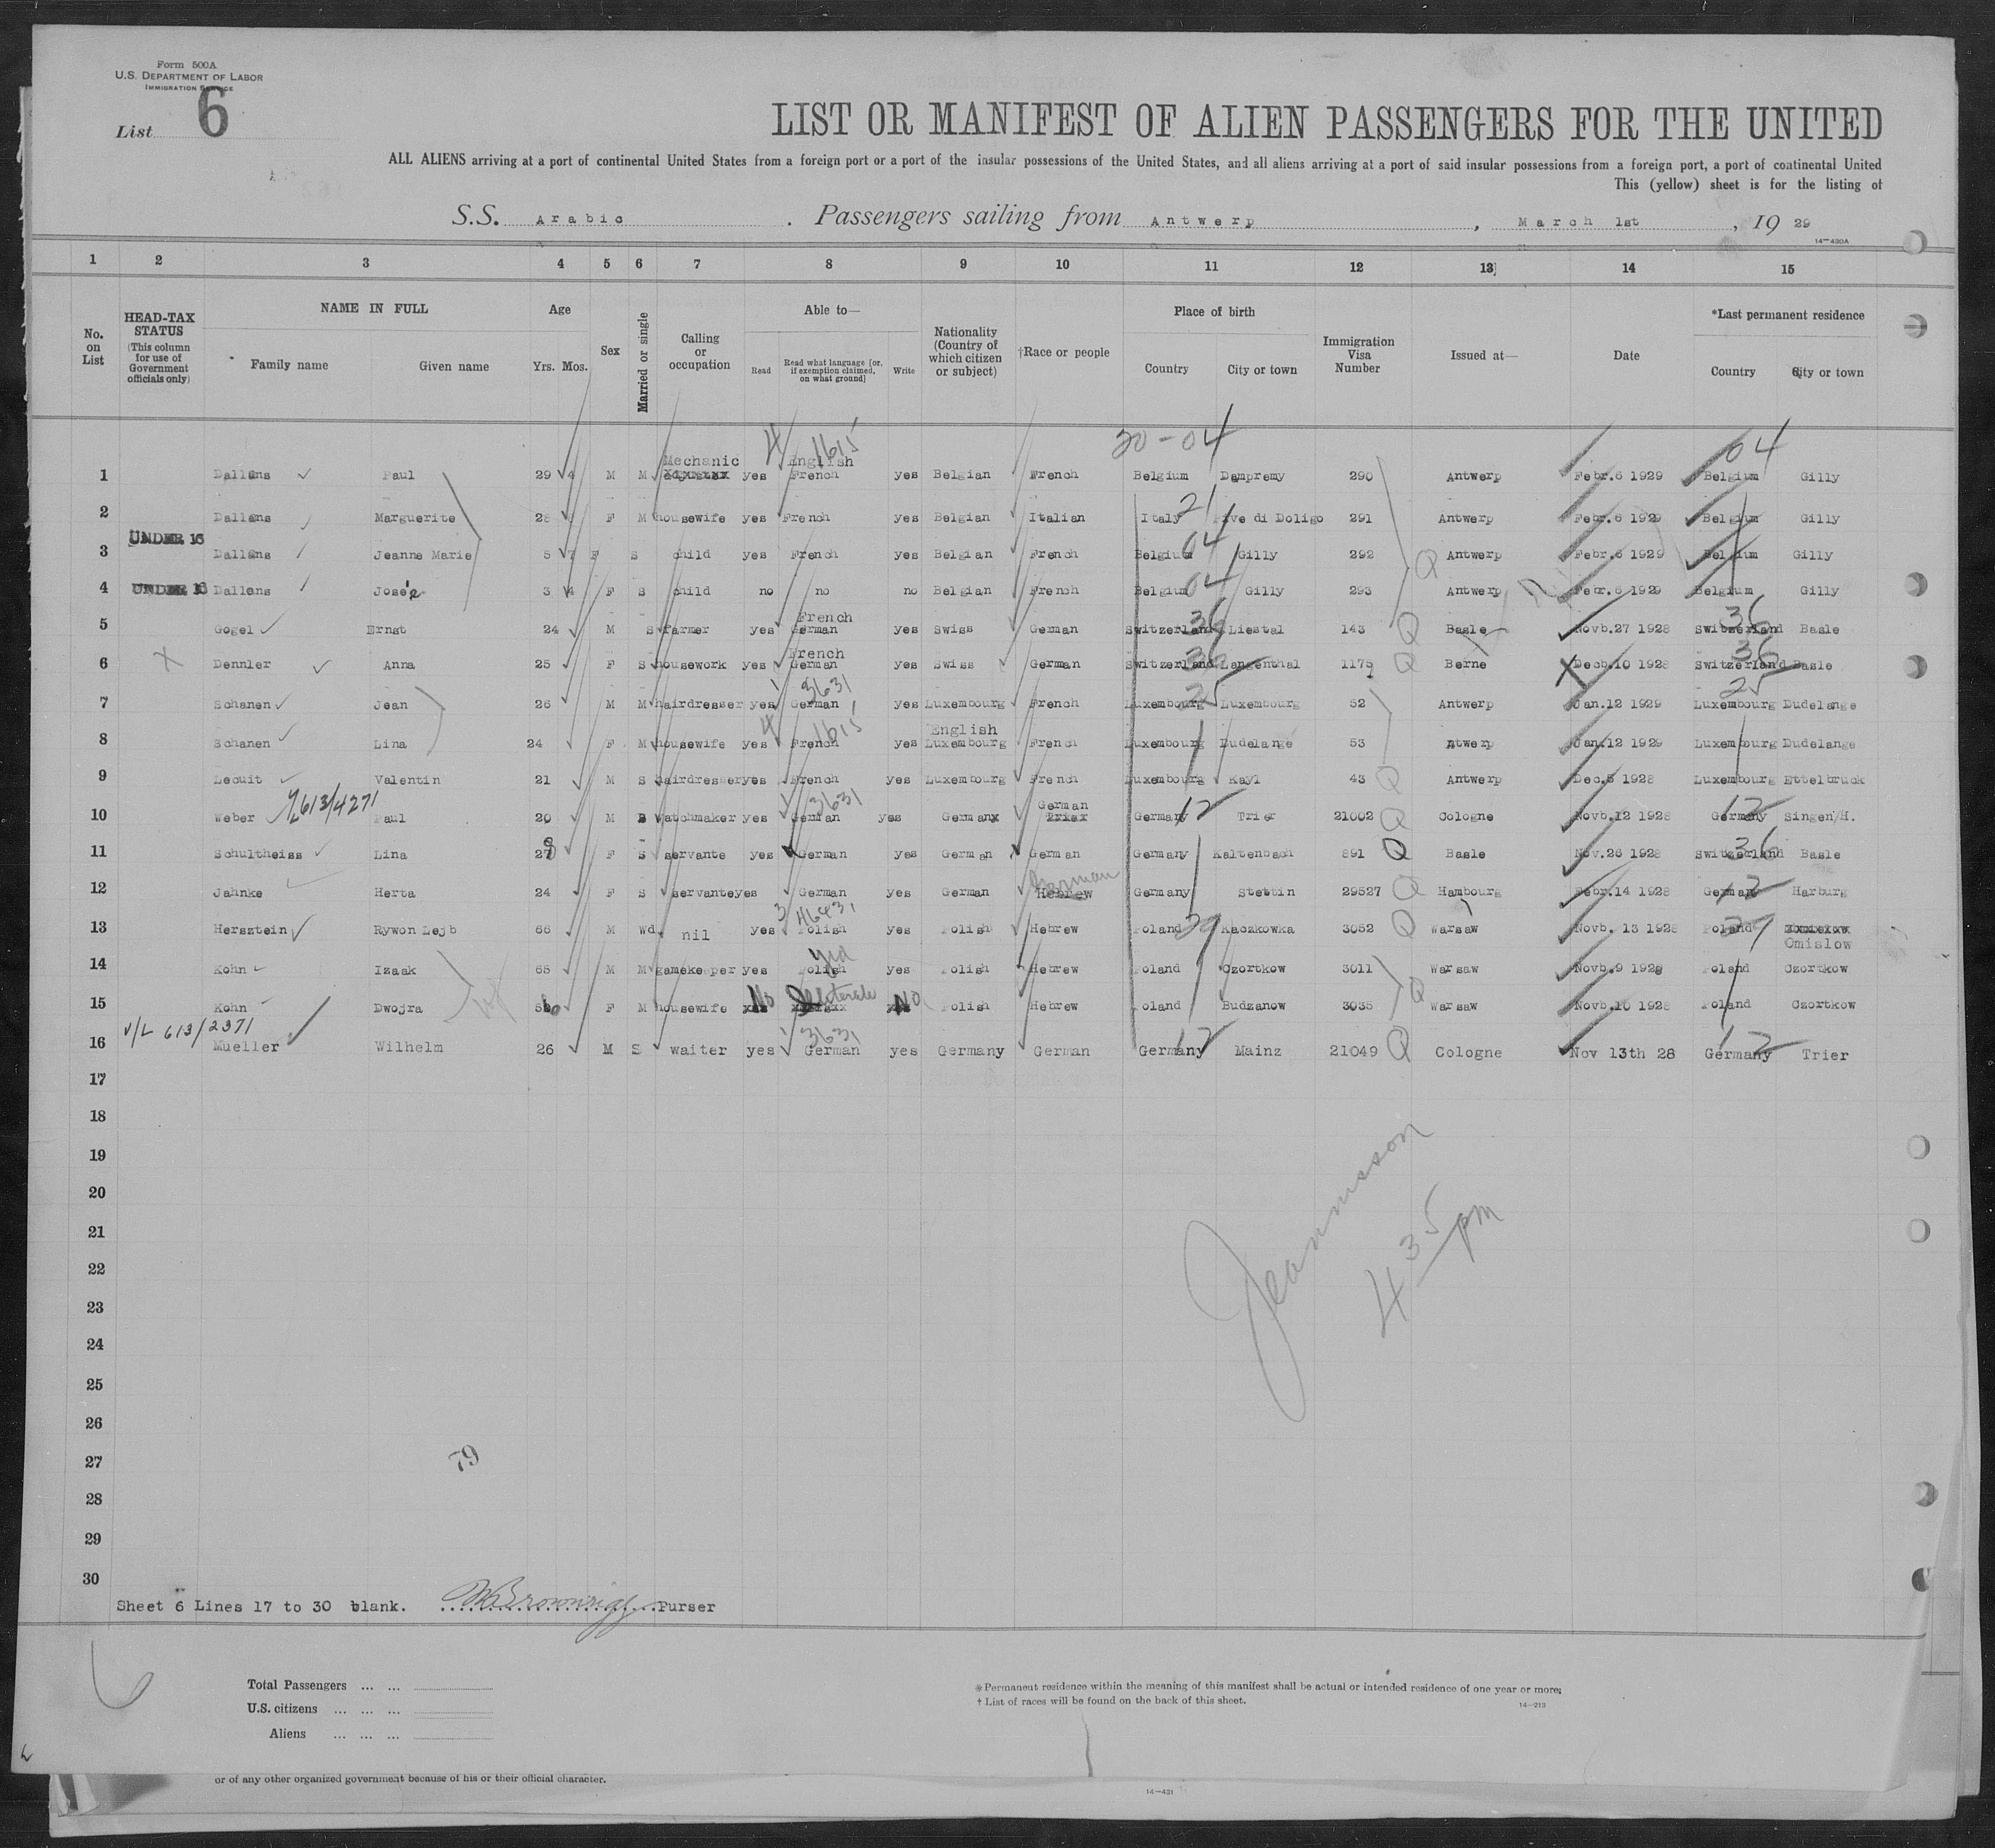 Form 500A
U.S. DEPARTMENT OF LABOR
IMMIGRATION SERVICE
List 6
LIST OR MANIFEST OF ALIEN PASSENGERS FOR THE UNITED
ALL ALIENS arriving at a port of continental United States from a foreign port or a port of the insular possessions of the United States, and all aliens arriving at a port of said insular possessions from a foreign port, a port of continental United
This (yellow) sheet is for the listing of
S.S. Arabic . Passengers sailing from Antwerp , March 1st , 19 29
14-430A
1 2 3 4 5 6 7 8 9 10 11 12 13 14 15
No. on List
HEAD-TAX STATUS (This column for use of Government officials only)
NAME IN FULL
Family name Given name
Age
Yrs. Mos.
Sex
Married or single
Calling or occupation
Able to—
Read
Read what language [or, if exemption claimed, on what ground]
Write
Nationality (Country of which citizen or subject)
†Race or people
Place of birth
Country City or town
Immigration Visa Number
Issued at—
Date
*Last permanent residence
Country City or town
4 1615 20-04 04
Mechanic English
1 Dallons Paul 29 4 M M yes French yes Belgian French Belgium Dampremy 290 Antwerp Febr.6 1929 Belgium Gilly
21
2 Dallons Marguerite 28 F M housewife yes French yes Belgian Italian Italy Pive di Doligo 291 Antwerp Febr.6 1929 Belgium Gilly
UNDER 16 04
3 Dallons Jeanne Marie 5 7 F S child yes French yes Belgian French Belgium Gilly 292 Q Antwerp Febr.6 1929 Belgium Gilly
04
4 UNDER 16 Dallons Josée 3 4 F S child no no no Belgian French Belgium Gilly 293 Antwerp Febr.6 1929 Belgium Gilly
French 36 36
5 Gogel Ernst 24 M S farmer yes German yes Swiss German Switzerland Liestal 143 Q Basle Novb.27 1928 Switzerland Basle
French 36 36
6 X Dennler Anna 25 F S housework yes German yes Swiss German Switzerland Langenthal 1175 Q Berne Decb.10 1928 Switzerland Basle
3631 25 25
7 Schanen Jean 26 M M hairdresser yes German yes Luxembourg French Luxembourg Luxembourg 52 Antwerp Jan.12 1929 Luxembourg Dudelange
4 1615 English
8 Schanen Lina 24 F M housewife yes French yes Luxembourg French Luxembourg Dudelange 53 Antwerp Jan.12 1929 Luxembourg Dudelange
9 Lecuit Valentin 21 M S hairdresser yes French yes Luxembourg French Luxembourg Kayl 43 Q Antwerp Dec.5 1928 Luxembourg Ettelbruck
V/L 613/4271 3631 German 12 12
10 Weber Paul 20 M S watchmaker yes German yes German Germany Trier 21002 Q Cologne Novb.12 1928 Germany Singen/H.
36
11 Schultheiss Lina 28 F S servante yes German yes German German Germany Kaltenbach 891 Q Basle Nov.26 1928 Switzerland Basle
German 12
12 Jahnke Herta 24 F S servante yes German yes German Hebrew Germany Stettin 29527 Q Hambourg Febr.14 1928 Germany Harburg
3 46431 29 29
13 Hersztein Rywon Lejb 66 M Wd nil yes Polish yes Polish Hebrew Poland Kaczkowka 3052 Q Warsaw Novb. 13 1928 Poland
Omislow
Yid
14 Kohn Izaak 65 M M gamekeeper yes Polish yes Polish Hebrew Poland Czortkow 3011 Warsaw Novb.9 1928 Poland Czortkow
15 Kohn Dwojra 60 F M housewife No Illiterate No Polish Hebrew Poland Budzanow 3035 Q Warsaw Novb.10 1928 Poland Czortkow
V/L 613/2371 3631 12 12
16 Mueller Wilhelm 26 M S waiter yes German yes Germany German Germany Mainz 21049 Q Cologne Nov 13th 28 Germany Trier
17
18
19
20
21
22
23
24
25
26
27
28
29
30
Jeannisson
4 35 pm
79
Sheet 6 Lines 17 to 30 blank. Brownrigg Purser
6
Total Passengers ... ...
U.S. citizens ... ... ...
Aliens ... ... ...
* Permanent residence within the meaning of this manifest shall be actual or intended residence of one year or more.
† List of races will be found on the back of this sheet.
14-213
or of any other organized government because of his or their official character.
14-431